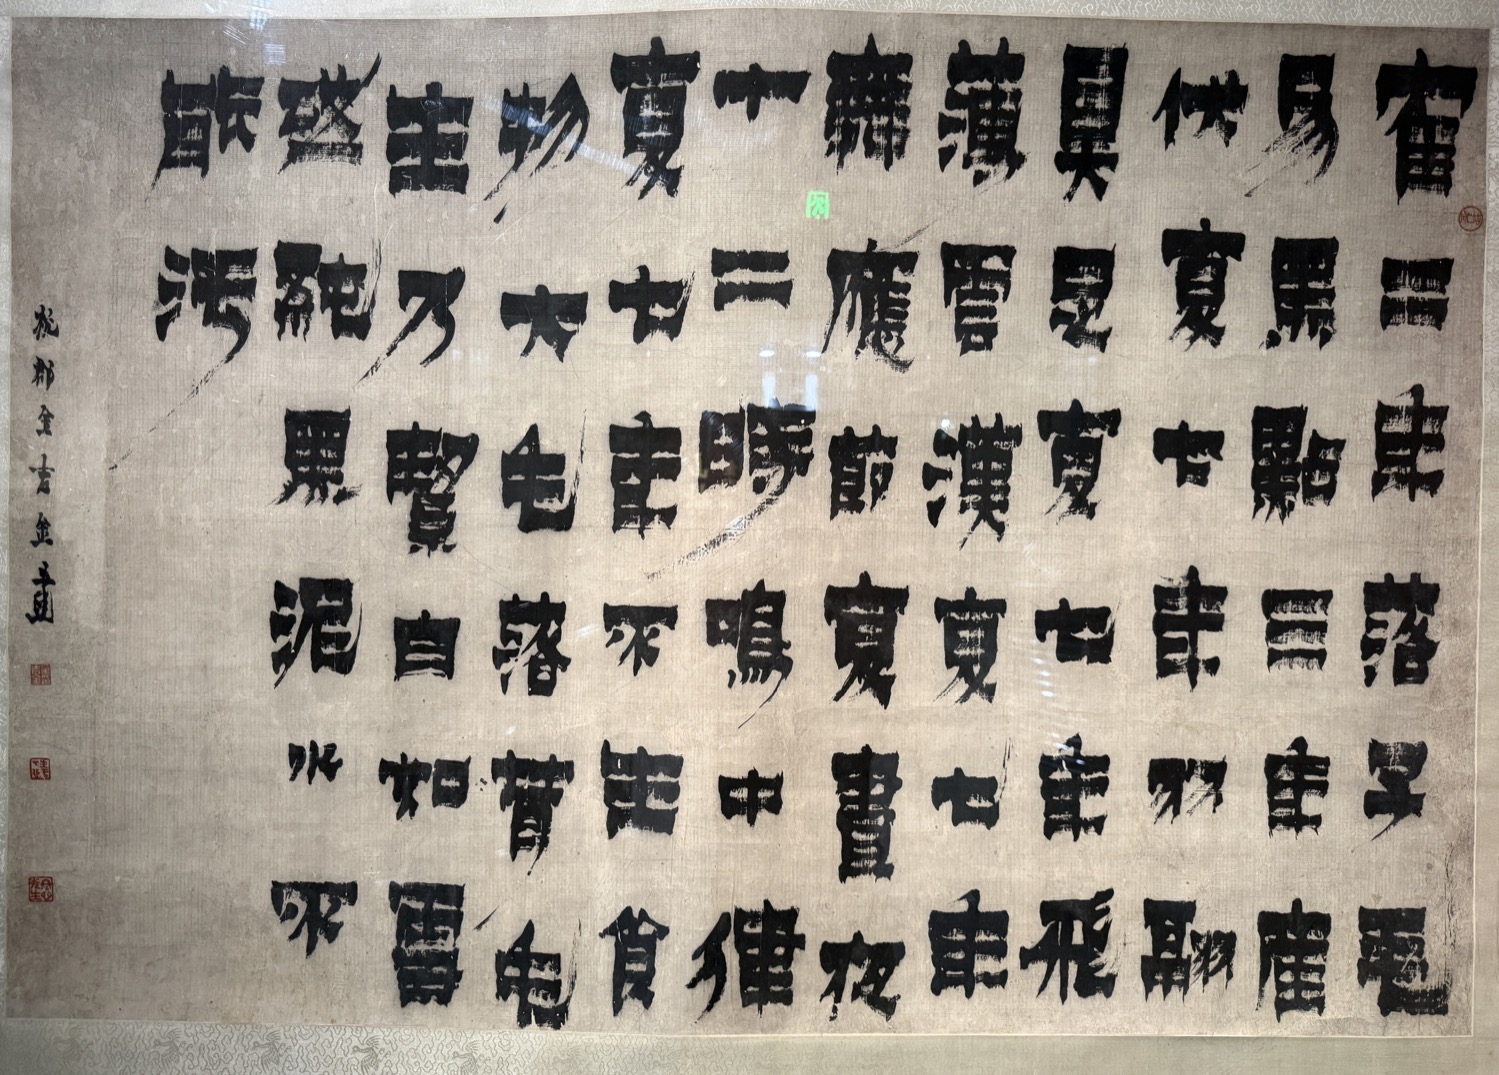 隺二年落子毛
易黑點三年產
伏夏七年羽翮
具夏七年飛
薄雲漢夏七年
舞應節夏晝夜
十二時鳴中律
夏七年不生食
物大毛落茸毛
生乃絜白如雪
純黑泥水不
能污
杭郡金吉金書